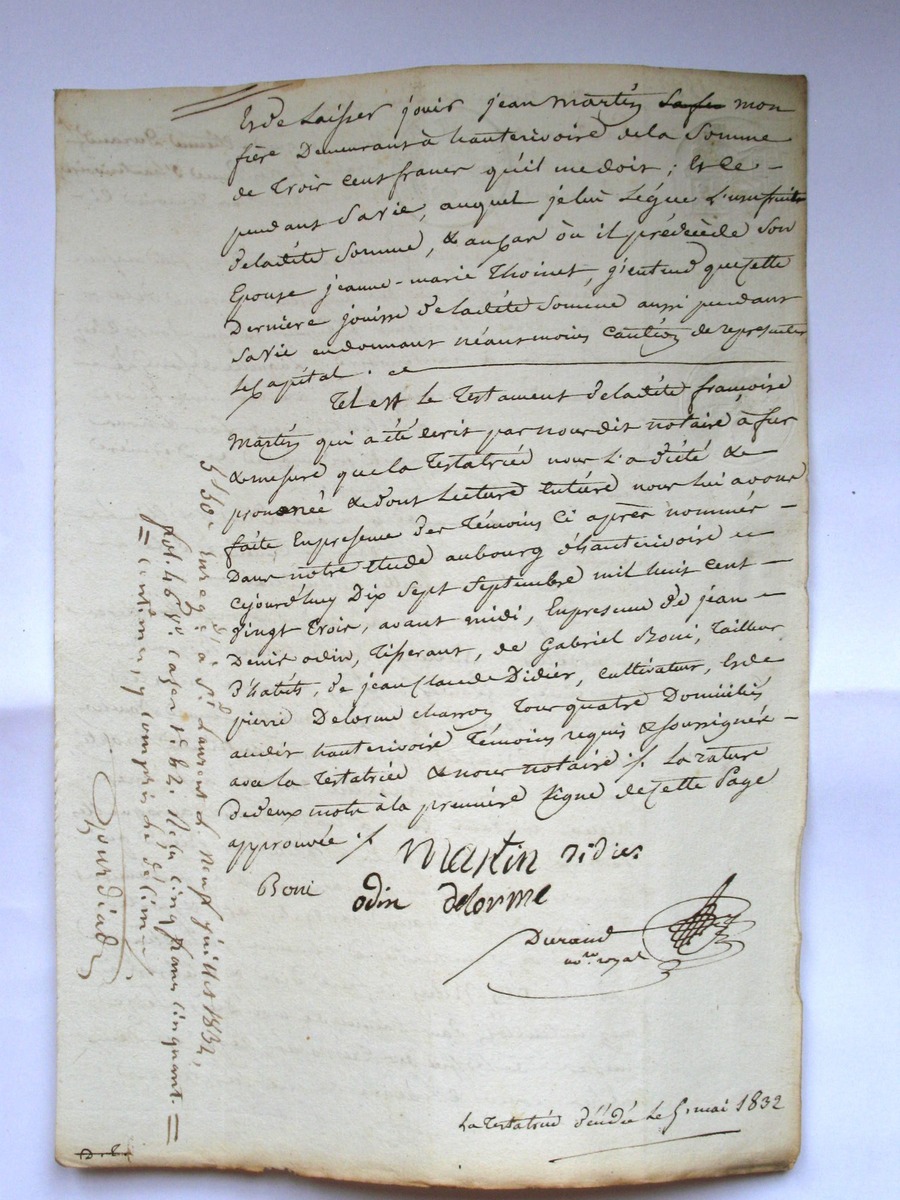 Et de laisser jouir jean martin mon
frère Demeurant à hauterivoire de la Somme
de Trois cent francs qu'il me doit ; et ce -
pendant Sa vie, auquel je lui légue L'usufruit
de ladite Somme, & au cas où il prédécède Son
Epouse jeanne-marie Thoinet, j'entend que cette
Dernière jouisse de ladite Somme aussi pendant
Sa vie en donnant néantmoins Caution de representer
le Capital. ce
Tel est le Testament de ladite françoise
Martin qui a été écrit par nous dit notaire à fur
& mesure que la Testatrice nous l'a dicté &
prononcé & dont lecture Entière nous lui avons
faite En presence des Témoins ci après nommés -
Dans notre étude au bourg d'hauterivoire ce
cejourd'huy Dix Sept Septembre mil huit cent -
vingt trois, avant midi, En presence de jean -
Denis odin, Tisserant, de Gabriel Boni, Tailleur
D'habits, de jean Claude Didier, Cultivateur, Et de
pierre Delorme charron Tous quatre Domiciliés
audit hauterivoire Témoins requis & soussignés -
avec la Testatrice & nous notaire ./. La rature
de deux mots à la première ligne de cette Page
approuvée ./.
Martin didier
Boni odin delorme
Durand
no.re royal
La Testatrice décédée le 5 mai 1832
Enreg.é à St Laurent le neuf juillet 1832,
fol. 46 v.o cases 1 & 2. R. cinq francs cinquant.
= centimes, y compris le décime
Gourdiat